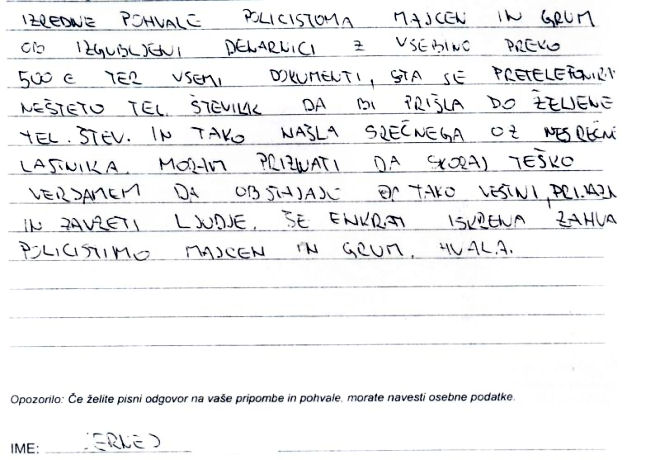 IZREDNE POHVALE POLICISTOMA MAJCEN IN GRUM
OB IZGUBLJENI DENARNICI Z VSEBINO PREKO
500 € TER VSEMI DOKUMENTI, STA SE PRETELEFONIRI
NEŠTETO TEL. ŠTEVILK DA BI PRIŠLA DO ŽELJENE
TEL. ŠTEV. IN TAKO NAŠLA SREČNEGA OZ NESREČNI
LASTNIKA. MORAM PRIZNATI DA SKORAJ TEŠKO
VERJAMEM DA OBSTAJAJO TAKO VESTNI, PRIJAZN
IN ZAVZETI LJUDJE. ŠE ENKRAT ISKRENA ZAHVA
POLICISTIMO MAJCEN IN GRUM. HVALA.
Opozorilo: Če želite pisni odgovor na vaše pripombe in pohvale, morate navesti osebne podatke.
IME: ERNEJ